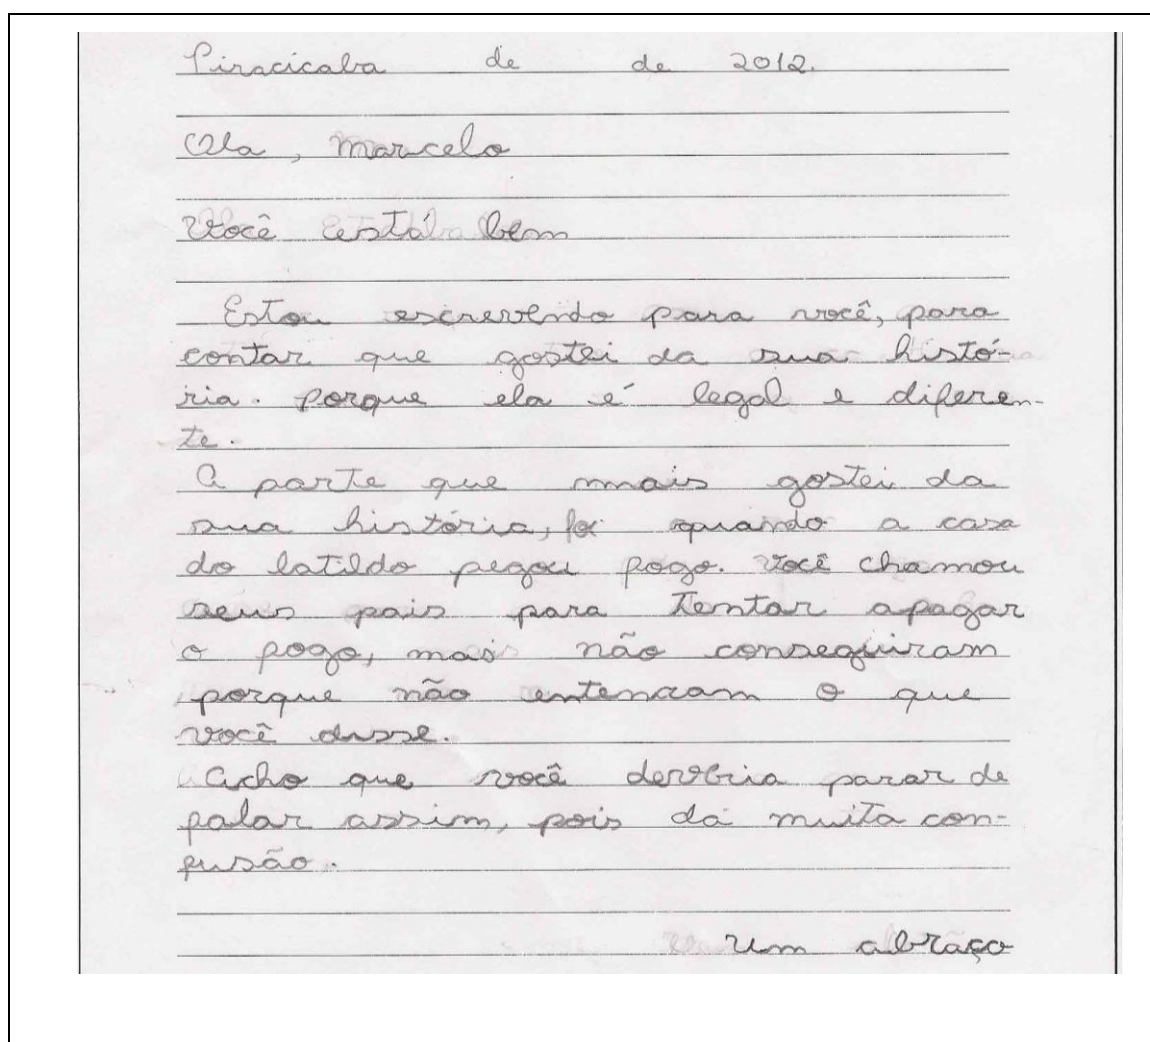 Piracicaba de de 2012.
Ola, Marcelo
Você está bem
Estou escrevendo para você, para
contar que gostei da sua histó-
ria. porque ela é legal e diferen-
te.
A parte que mais gostei da
sua história, foi quando a casa
do latildo pegou fogo. Você chamou
seus pais para tentar apagar
o fogo, mais não conseguiram
porque não entenram o que
você disse.
Acho que você deveria parar de
falar assim, pois dá muita con-
fusão.
um abraço